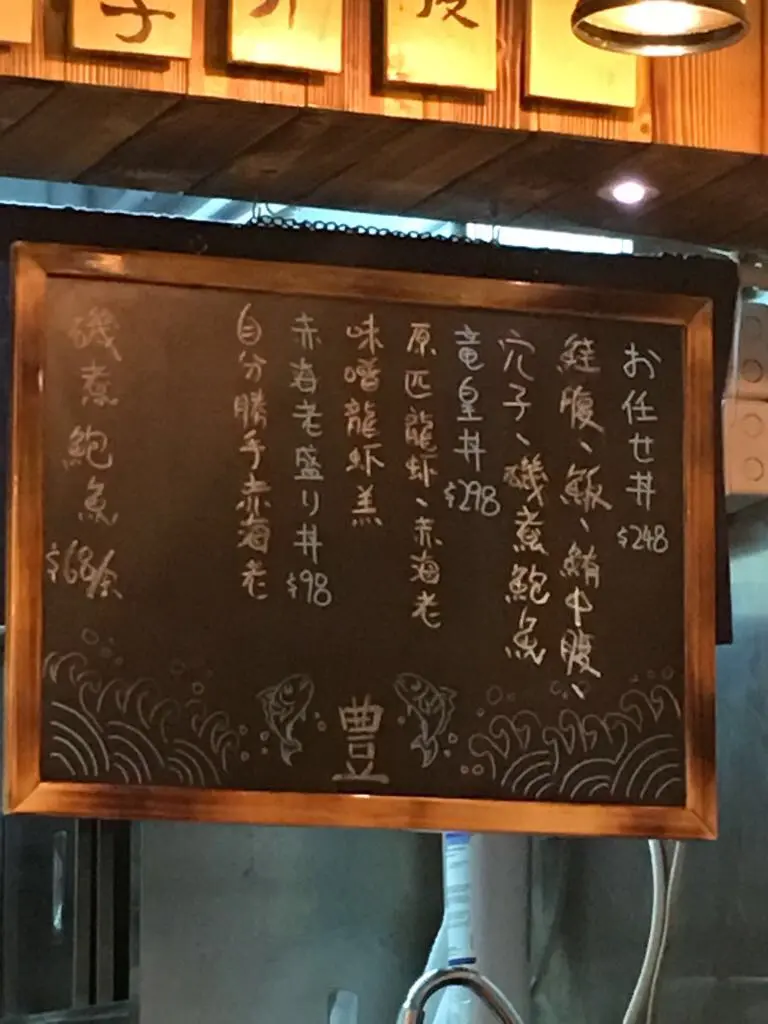 お任せ丼 $248
鮭腹、鯢、鮪中腹、
穴子、磯煮鮑魚
竜皇丼 $298
原匹龍虾、赤海老
味噌龍虾羔
赤海老盛り丼 $98
自分勝手赤海老
磯煮鮑魚 $68/余
豊
子